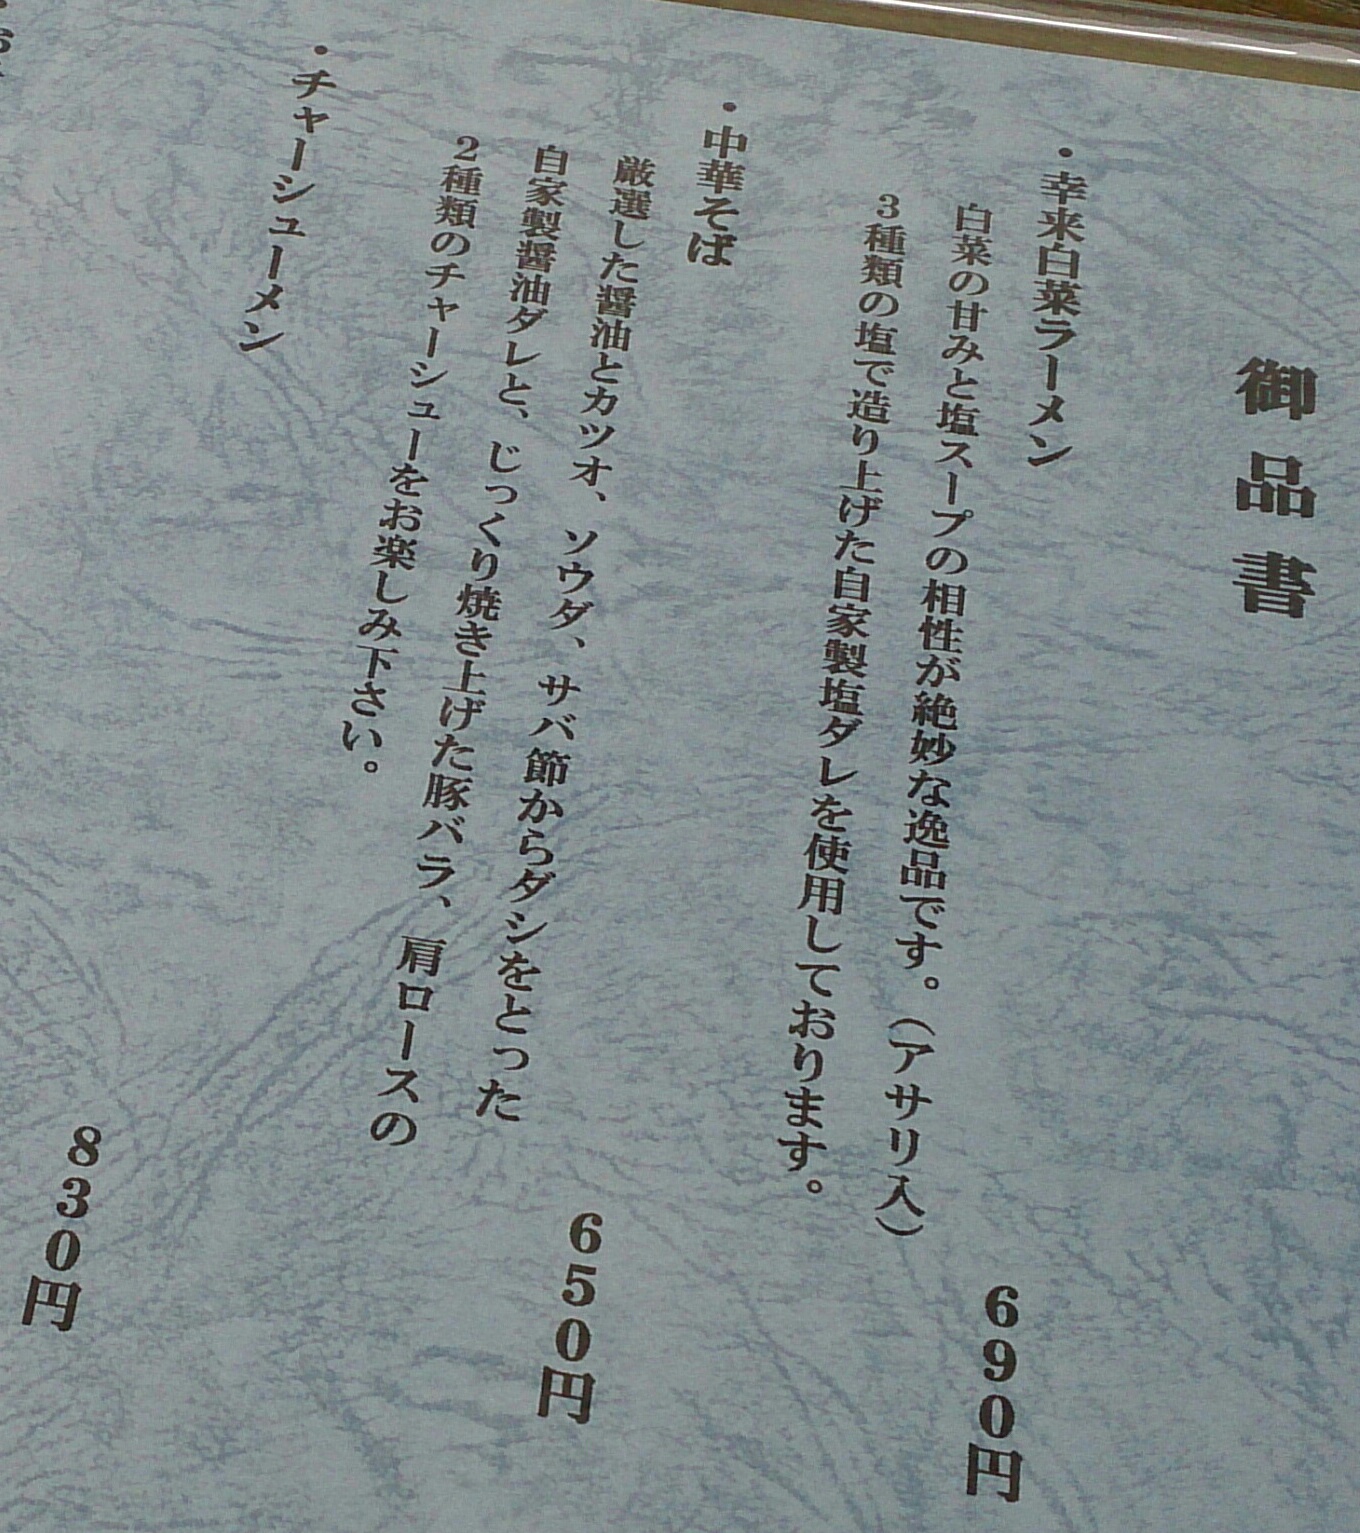 御品書
・幸来白菜ラーメン
白菜の甘みと塩スープの相性が絶妙な逸品です。（アサリ入）
3種類の塩で造り上げた自家製塩ダレを使用しております。
690円
・中華そば
厳選した醤油とカツオ、ソウダ、サバ節からダシをとった
自家製醤油ダレと、じっくり焼き上げた豚バラ、肩ロースの
2種類のチャーシューをお楽しみ下さい。
650円
・チャーシューメン
830円